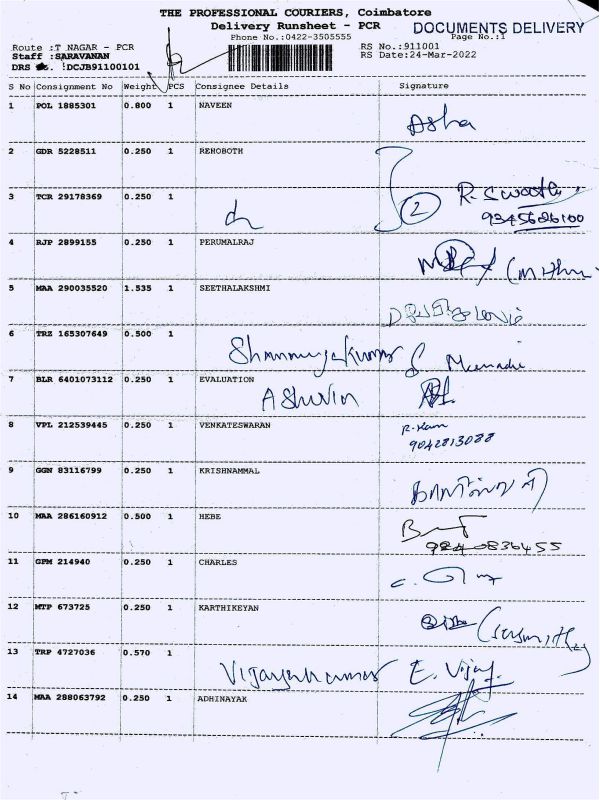 THE PROFESSIONAL COURIERS, Coimbatore
Delivery Runsheet - PCR
DOCUMENTS DELIVERY
Phone No.:0422-3505555
Page No.:1
Route :T NAGAR - PCR
RS No.:911001
Staff :SARAVANAN
RS Date:24-Mar-2022
DRS :DCJB91100101
S No Consignment No Weight PCS Consignee Details Signature
1 POL 1885301 0.800 1 NAVEEN
Asha
2 GDR 5228511 0.250 1 REHOBOTH
3 TCR 29178369 0.250 1
2
9345626100
4 RJP 2899155 0.250 1 PERUMALRAJ
5 MAA 290035520 1.535 1 SEETHALAKSHMI
6 TRZ 165307649 0.500 1
Shanmugakumar
7 BLR 6401073112 0.250 1 EVALUATION
Ashwin
8 VPL 212539445 0.250 1 VENKATESWARAN
9042813088
9 GGN 83116799 0.250 1 KRISHNAMMAL
10 MAA 286160912 0.500 1 HEBE
9840836455
11 GPM 214940 0.250 1 CHARLES
12 MTP 673725 0.250 1 KARTHIKEYAN
13 TRP 4727036 0.570 1
Vijayakumar E. Vijay
14 MAA 288063792 0.250 1 ADHINAYAK